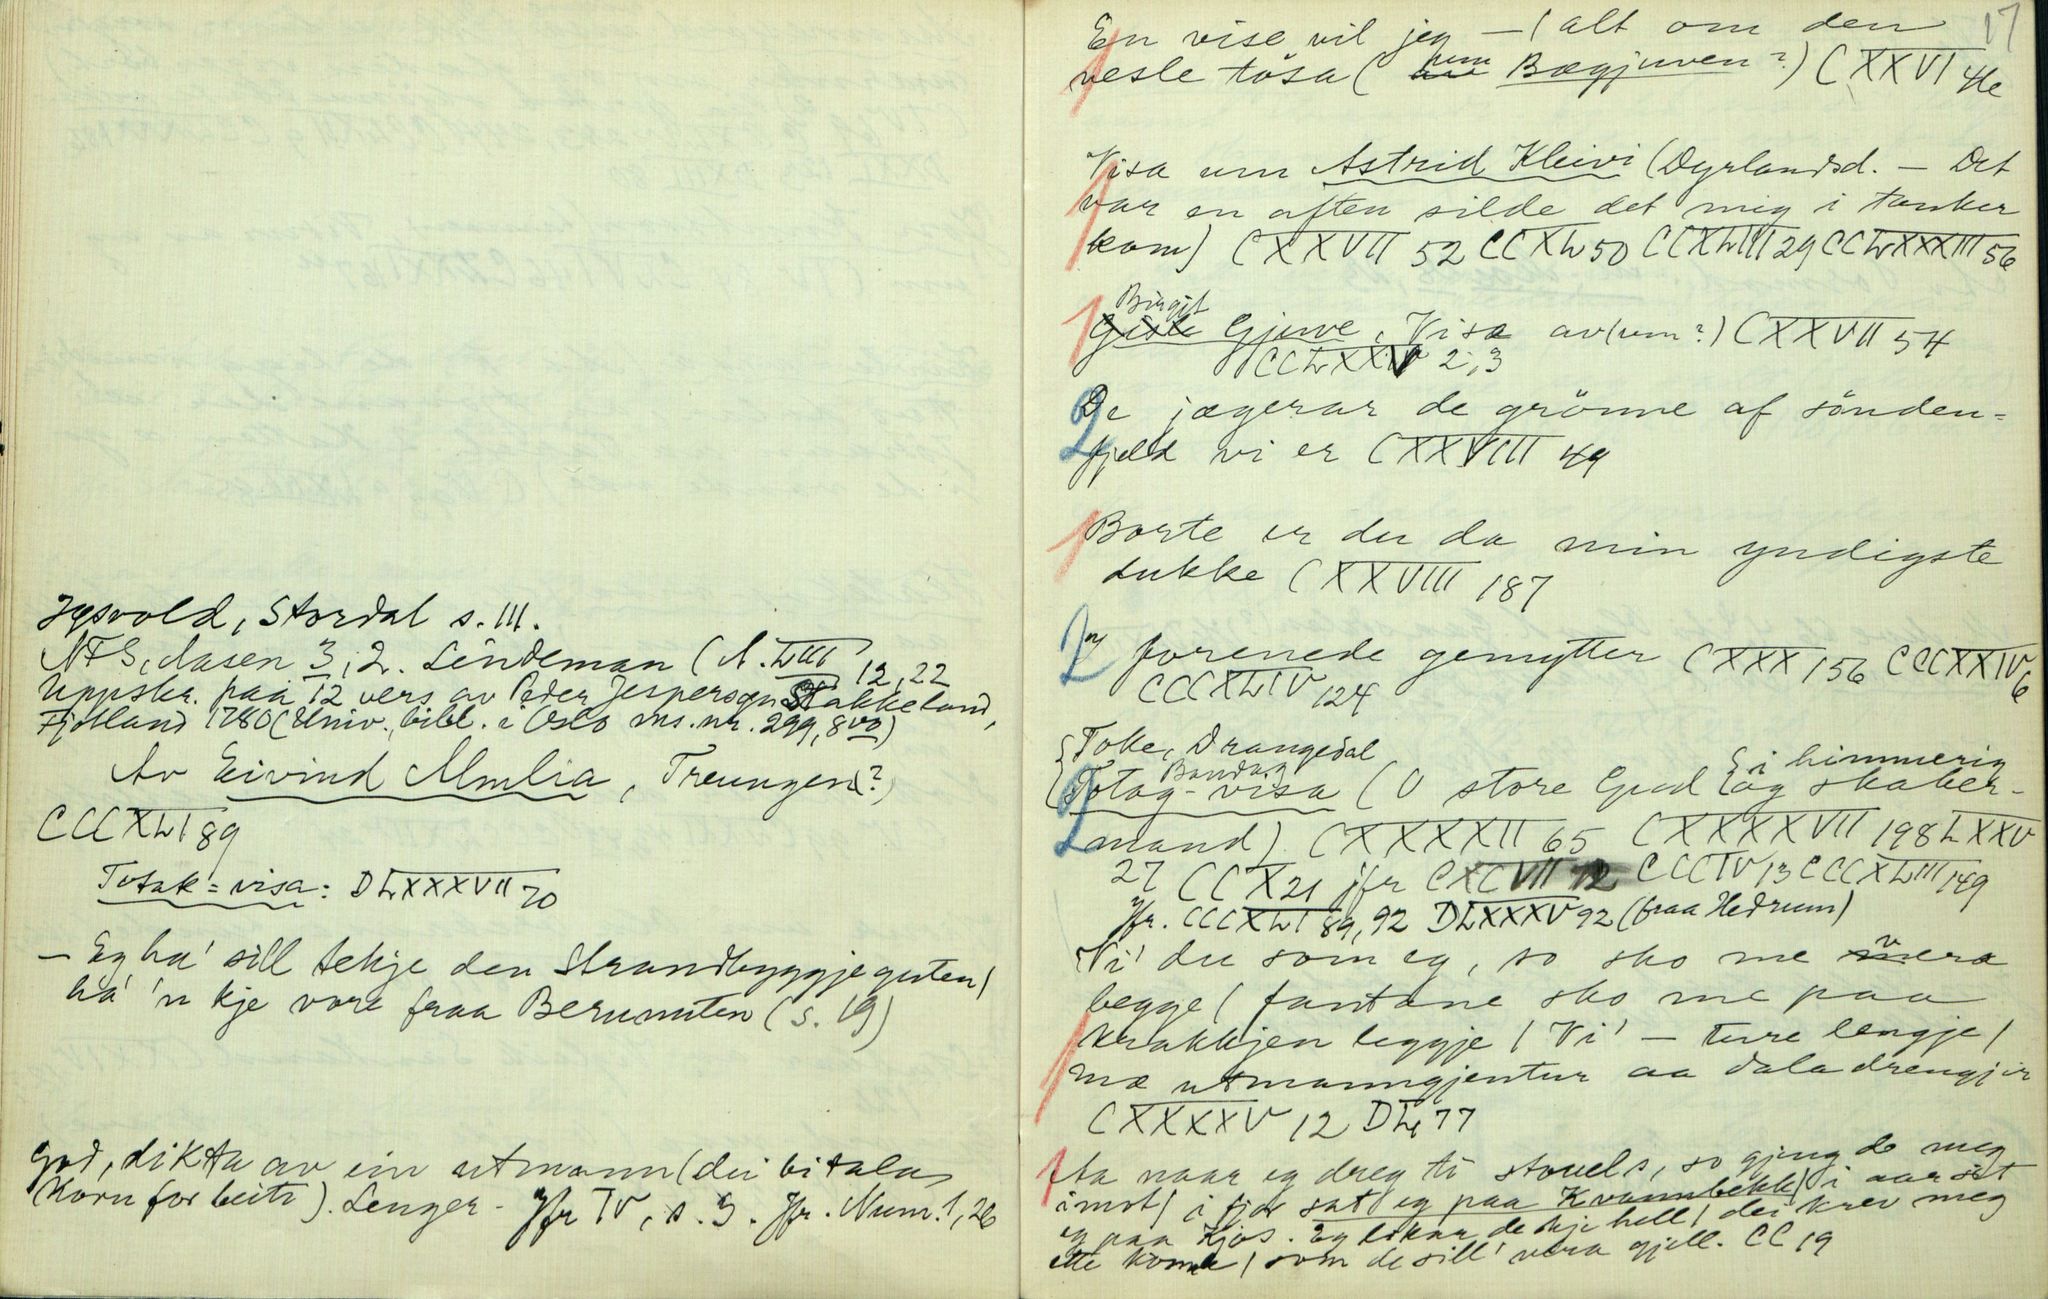 Jysvold, Stordal s. 111.
NFS, Aasen 3, 2. Lindeman (N. LIII 12, 22
Uppskr. paa 12 vers av Peder Jesperson Stakkeland,
Fjotland 1780 (Univ. bibl. i Oslo ms. nr. 299, 8vo)
Av Eivind Mmlia, Treungen?)
CCCXLI 89
Totak=visa: DLXXXVII 70
— Eg ha' sill tekje den Strandbyggjeguten /
ha' 'n kje vore fraa Berunuten (s. 19)
god, dikta av ein utmann (dei bitala
korn for beite). Lenger - Jfr IV, s. 3. Jfr. Num. 1, 26
17
En vise vil jeg — / alt om den
vesle tøsa ( um Bægjuven?) CXXVI 46
Visa um Astrid Kleivi (Dyrlandsd. — Det
var en aften silde det mig i tanker
kom) CXXVII 52 CCXL 50 CCXLIII 29 CCLXXXIII 56
Birgit
Gisle Gjuve, Visa av (um?) CXXVII 54
CCLXXIV 2, 3
De jægerar de grönne af sönden=
fjeld vi er CXXVIII 49
Borte er du da min yndigste
dukke CXXVIII 187
forenede gemytter CXXX 156 CCCXXIV 6
CCCXLIV 124
Toke, Drangedal
Bandag i himmerig
Totag-visa (O store Gud og skaber-
mand) CXXXXII 65 CXXXXVII 198 LXXV
27 CCX 21 jfr CXCVII 12 CCCIV 13 CCCXLIII 149
Jfr. CCCXLI 89, 92 DLXXXV 92 (fraa Hedrum)
Vi' du som eg, so sko me vera
begge / fantane sko me paa
krakkjen leggje / Vi' — ture lengje /
mæ utmanngjentur aa daladrengjir
CXXXXV 12 DL, 77
Aa naar eg dreg ti stouls, so gjeng de meg
imot / i fjor sat eg paa Kvannbekk / i aar sit
eg paa Kjos. Eg likar de kje hell / dei krev meg
ette konn / som de sill' vera gjell. CC 19